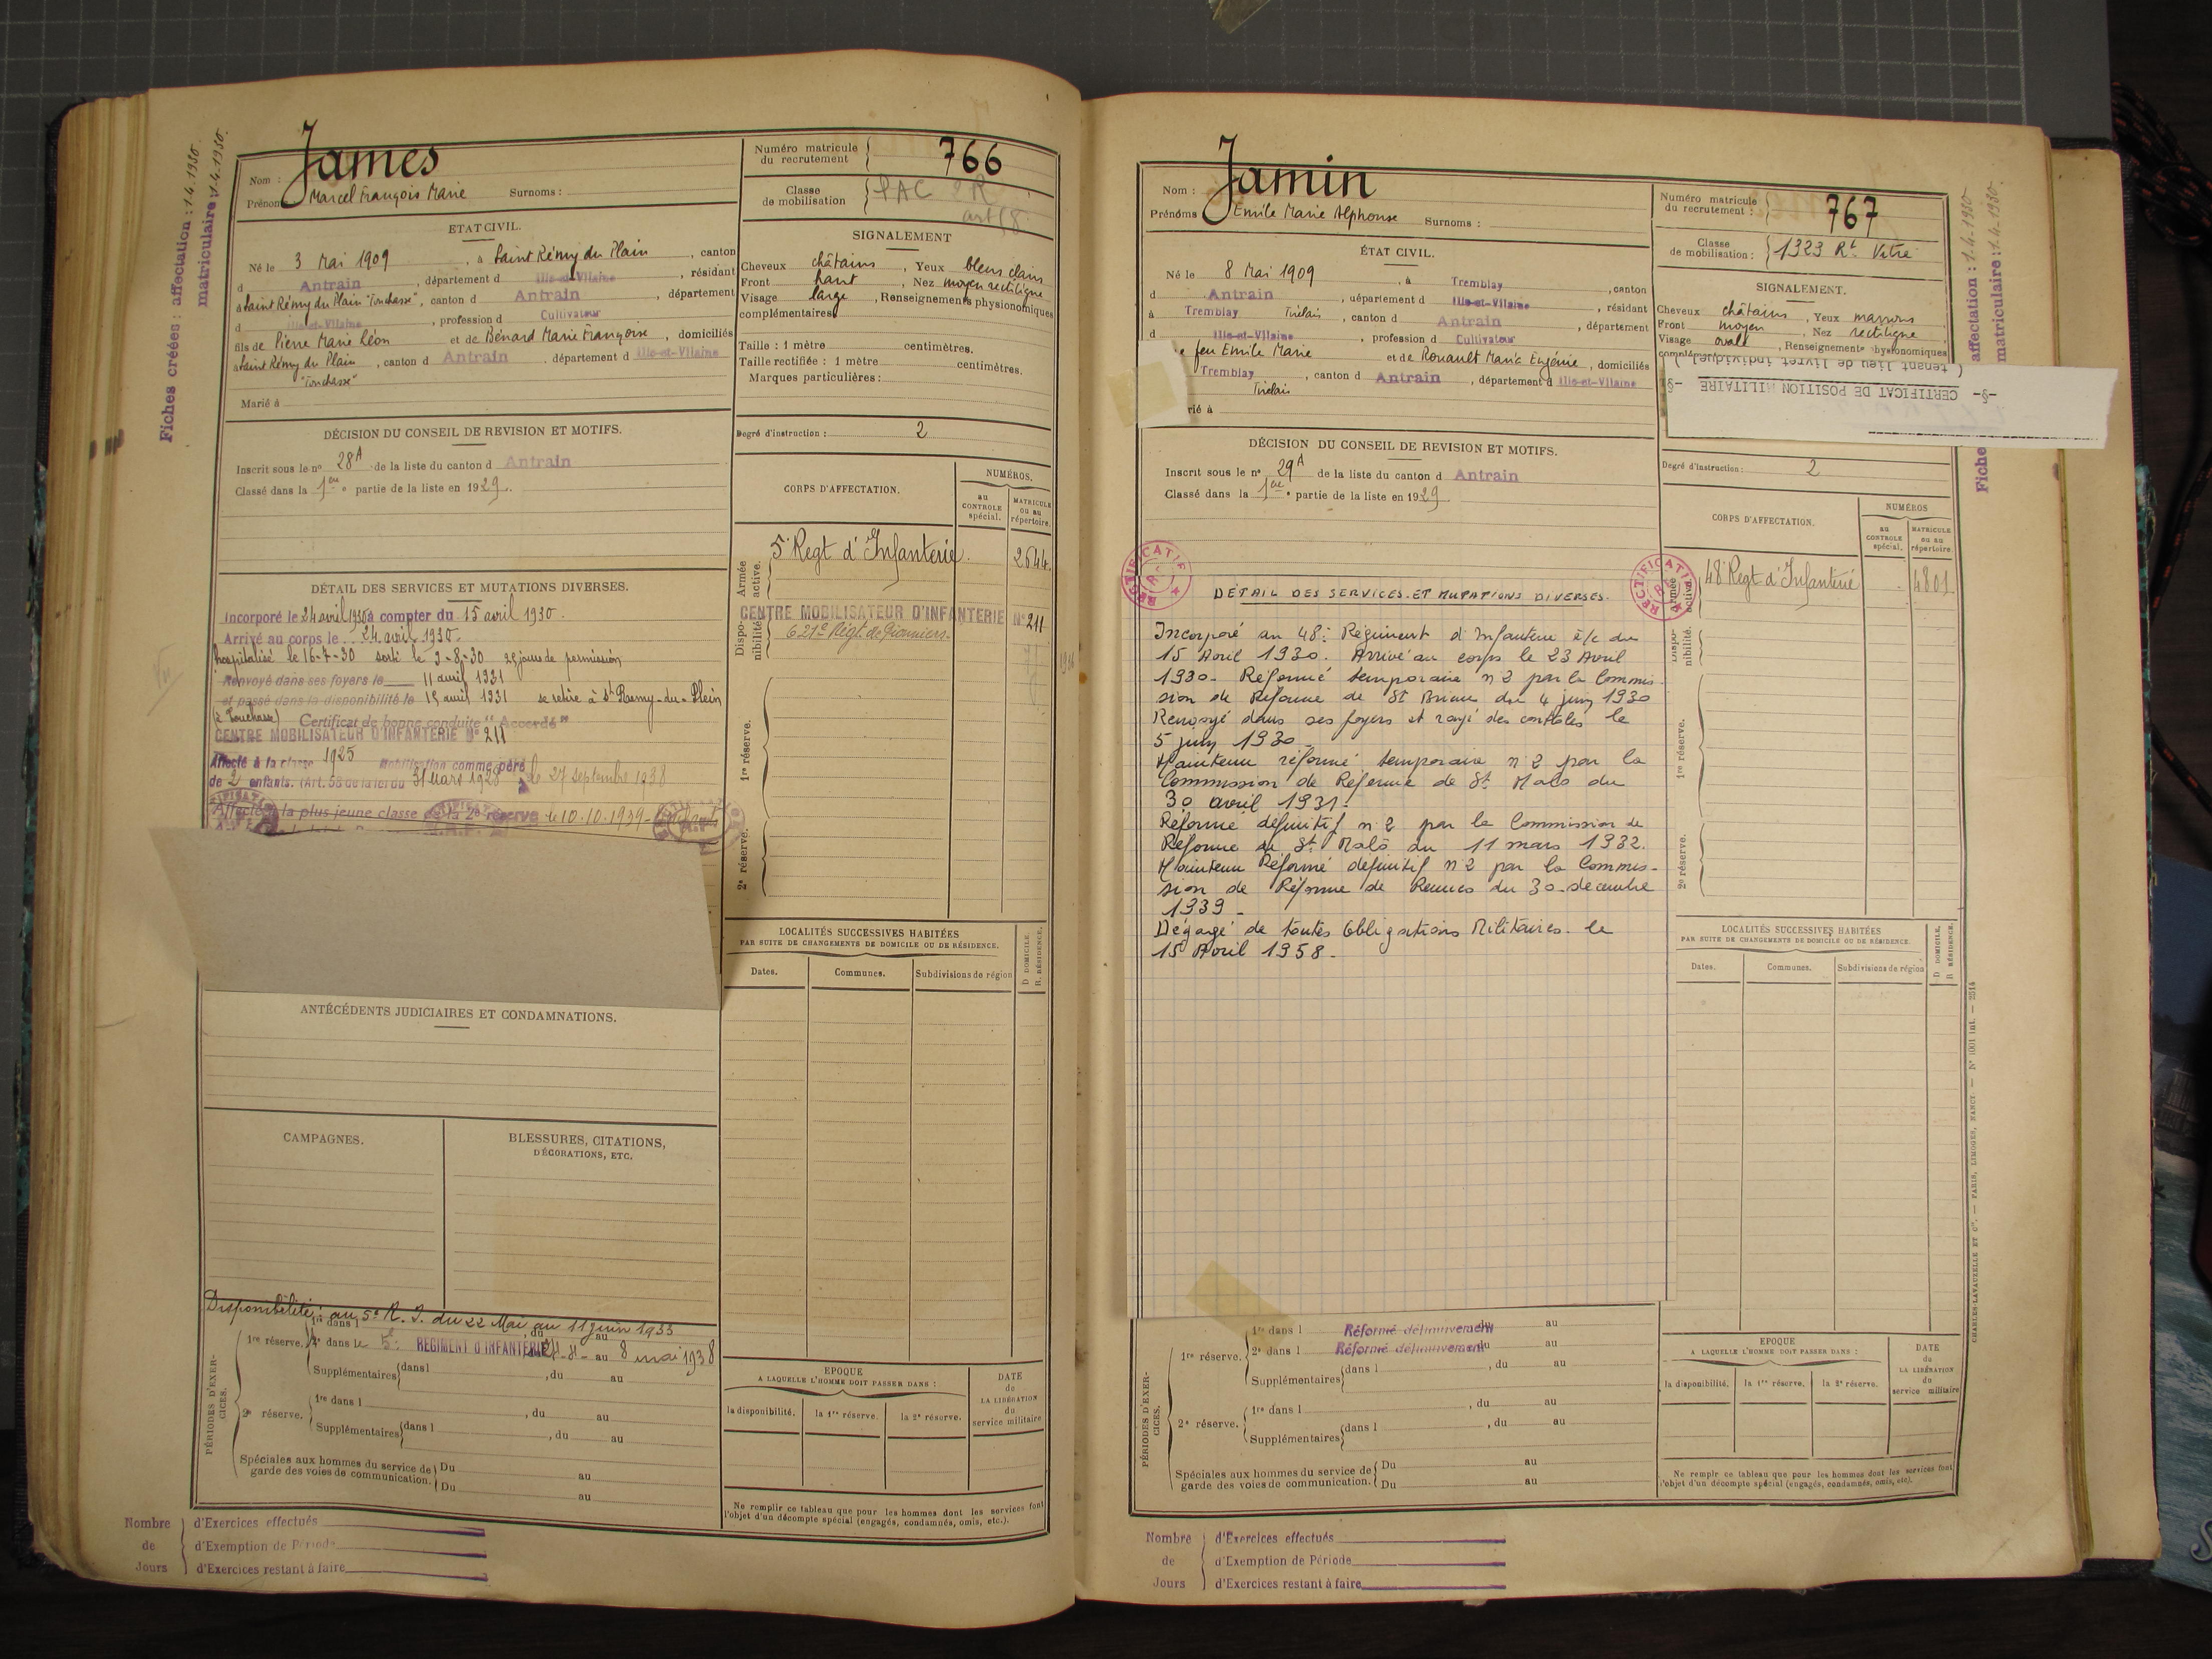 Fiches créées : affectation : 1.4.1930.
matriculaire : 1.4.1930.
James
Nom :
Prénoms Marcel François Marie Surnoms :
Numéro matricule du recrutement 766
Classe de mobilisation
ETAT CIVIL.
Né le 3 Mai 1909, à Saint Rémy du Plain, canton
d Antrain, département d Ille-et-Vilaine, résidant
à Saint Rémy du Plain, canton d Antrain, département
d Ille-et-Vilaine, profession d Cultivateur
fils de Pierre Marie Léon et de Bénard Marie Françoise, domiciliés
à Saint Rémy du Plain, canton d Antrain, département d Ille-et-Vilaine
Marié à
SIGNALEMENT
Cheveux châtains, Yeux bleus clairs
Front haut, Nez moyen rectiligne
Visage large, Renseignements physionomiques
complémentaires
Taille : 1 mètre centimètres.
Taille rectifiée : 1 mètre centimètres.
Marques particulières :
Degré d'instruction : 2
DÉCISION DU CONSEIL DE REVISION ET MOTIFS.
Inscrit sous le n° 28A de la liste du canton d Antrain
Classé dans la 1ère partie de la liste en 1929.
CORPS D'AFFECTATION.
NUMÉROS.
au CONTROLE spécial.
MATRICULE ou au répertoire.
Armée active.
5e Regt d'Infanterie. 2644.
Disponibilité
CENTRE MOBILISATEUR D'INFANTERIE N° 211
621e Régt de Pionniers.
1re réserve.
2e réserve.
DÉTAIL DES SERVICES ET MUTATIONS DIVERSES.
Incorporé le 24 avril 1930 à compter du 15 avril 1930.
Arrivé au corps le 24 avril 1930.
hospitalisé le 16-7-30 sorti le 2-8-30 25 jours de permission
Renvoyé dans ses foyers le 11 avril 1931
et passé dans la disponibilité le 15 avril 1931 se retire à St Remy-du-Plein
Certificat de bonne conduite "Accordé"
CENTRE MOBILISATEUR D'INFANTERIE N° 211
Affecté à la classe 1925 Mobilisation comme père
de 2 enfants. (Art. 58 de la loi du 31 Mars 1928 le 27 septembre 1938
Affecté à la plus jeune classe de la 2e réserve le 10.10.1939
ANTÉCÉDENTS JUDICIAIRES ET CONDAMNATIONS.
CAMPAGNES.
BLESSURES, CITATIONS,
DÉCORATIONS, ETC.
LOCALITÉS SUCCESSIVES HABITÉES
PAR SUITE DE CHANGEMENTS DE DOMICILE OU DE RÉSIDENCE.
Dates. Communes. Subdivisions de région
D. DOMICILE.
R. RÉSIDENCE.
Disponibilité : au 5e R. I. du 22 Mai au 11 juin 1933
PÉRIODES D'EXERCICES.
1re réserve.
1re dans l , du au
2e dans le 5e REGIMENT D'INFANTERIE au 8 mai 1938
Supplémentaires dans l , du au
2e réserve.
1re dans l , du au
Supplémentaires dans l , du au
Spéciales aux hommes du service de
garde des voies de communication.
Du au
Du au
EPOQUE
A LAQUELLE L'HOMME DOIT PASSER DANS :
la disponibilité. la 1re réserve. la 2e réserve.
DATE de LA LIBÉRATION du service militaire
Ne remplir ce tableau que pour les hommes dont les services font
l'objet d'un décompte spécial (engagés, condamnés, omis, etc.).
Nombre de Jours
d'Exercices effectués
d'Exemption de Période
d'Exercices restant à faire
Jamin
Nom :
Prénoms Emile Marie Alphonse Surnoms :
Numéro matricule du recrutement : 767
Classe de mobilisation : 1323 Rt Vitré
ÉTAT CIVIL.
Né le 8 Mai 1909, à Tremblay, canton
d Antrain, département d Ille-et-Vilaine, résidant
à Tremblay, canton d Antrain, département
d Ille-et-Vilaine, profession d Cultivateur
feu Emile Marie et de Rouault Marie Eugénie, domiciliés
Tremblay, canton d Antrain, département d Ille-et-Vilaine
rié à
SIGNALEMENT.
Cheveux châtains, Yeux marrons
Front moyen, Nez rectiligne
Visage ovale, Renseignements physionomiques
-§- CERTIFICAT DE POSITION MILITAIRE -§-
(tenant lieu de livret individuel)
Degré d'instruction : 2
DÉCISION DU CONSEIL DE REVISION ET MOTIFS.
Inscrit sous le n° 29A de la liste du canton d Antrain
Classé dans la 1ère partie de la liste en 1929
CORPS D'AFFECTATION.
NUMÉROS
au CONTROLE spécial.
MATRICULE ou au répertoire.
48e Regt d'Infanterie 4801.
RECTIFICATIF
RECTIFICATIF
DETAIL DES SERVICES ET MUTATIONS DIVERSES.
Incorporé au 48e Régiment d'Infanterie à/c du
15 Avril 1930. Arrivé au corps le 23 Avril
1930. Réformé temporaire n°2 par la Commis-
sion de Réforme de St Brieuc du 4 juin 1930
Renvoyé dans ses foyers et rayé des contrôles le
5 juin 1930.
Maintenu réformé temporaire n°2 par la
Commission de Réforme de St Malo du
30 avril 1931.
Réformé définitif n°2 par la Commission de
Réforme de St Malo du 11 mars 1932.
Maintenu Réformé définitif n°2 par la Commis-
sion de Réforme de Rennes du 30 décembre
1939 -
Dégagé de toutes Obligations Militaires le
15 Avril 1958 -
Disponibilité.
1re réserve.
2e réserve.
LOCALITÉS SUCCESSIVES HABITÉES
PAR SUITE DE CHANGEMENTS DE DOMICILE OU DE RÉSIDENCE.
Dates. Communes. Subdivisions de région
D. DOMICILE.
R. RÉSIDENCE.
PÉRIODES D'EXERCICES.
1re réserve.
1re dans l Réformé définitivement du au
2e dans l Réformé définitivement du au
Supplémentaires dans l , du au
2e réserve.
1re dans l , du au
Supplémentaires dans l , du au
Spéciales aux hommes du service de
garde des voies de communication.
Du au
Du au
EPOQUE
A LAQUELLE L'HOMME DOIT PASSER DANS :
la disponibilité. la 1re réserve. la 2e réserve.
DATE du LA LIBÉRATION du service militaire
Ne remplir ce tableau que pour les hommes dont les services font
l'objet d'un décompte spécial (engagés, condamnés, omis, etc).
Nombre de Jours
d'Exercices effectués
d'Exemption de Période
d'Exercices restant à faire
affectation : 1.4.1930
matriculaire : 1.4.1930.
Fiche
CHARLES-LAVAUZELLE ET Cie. — PARIS, LIMOGES, NANCY. — N° 1001 Int. — 2514